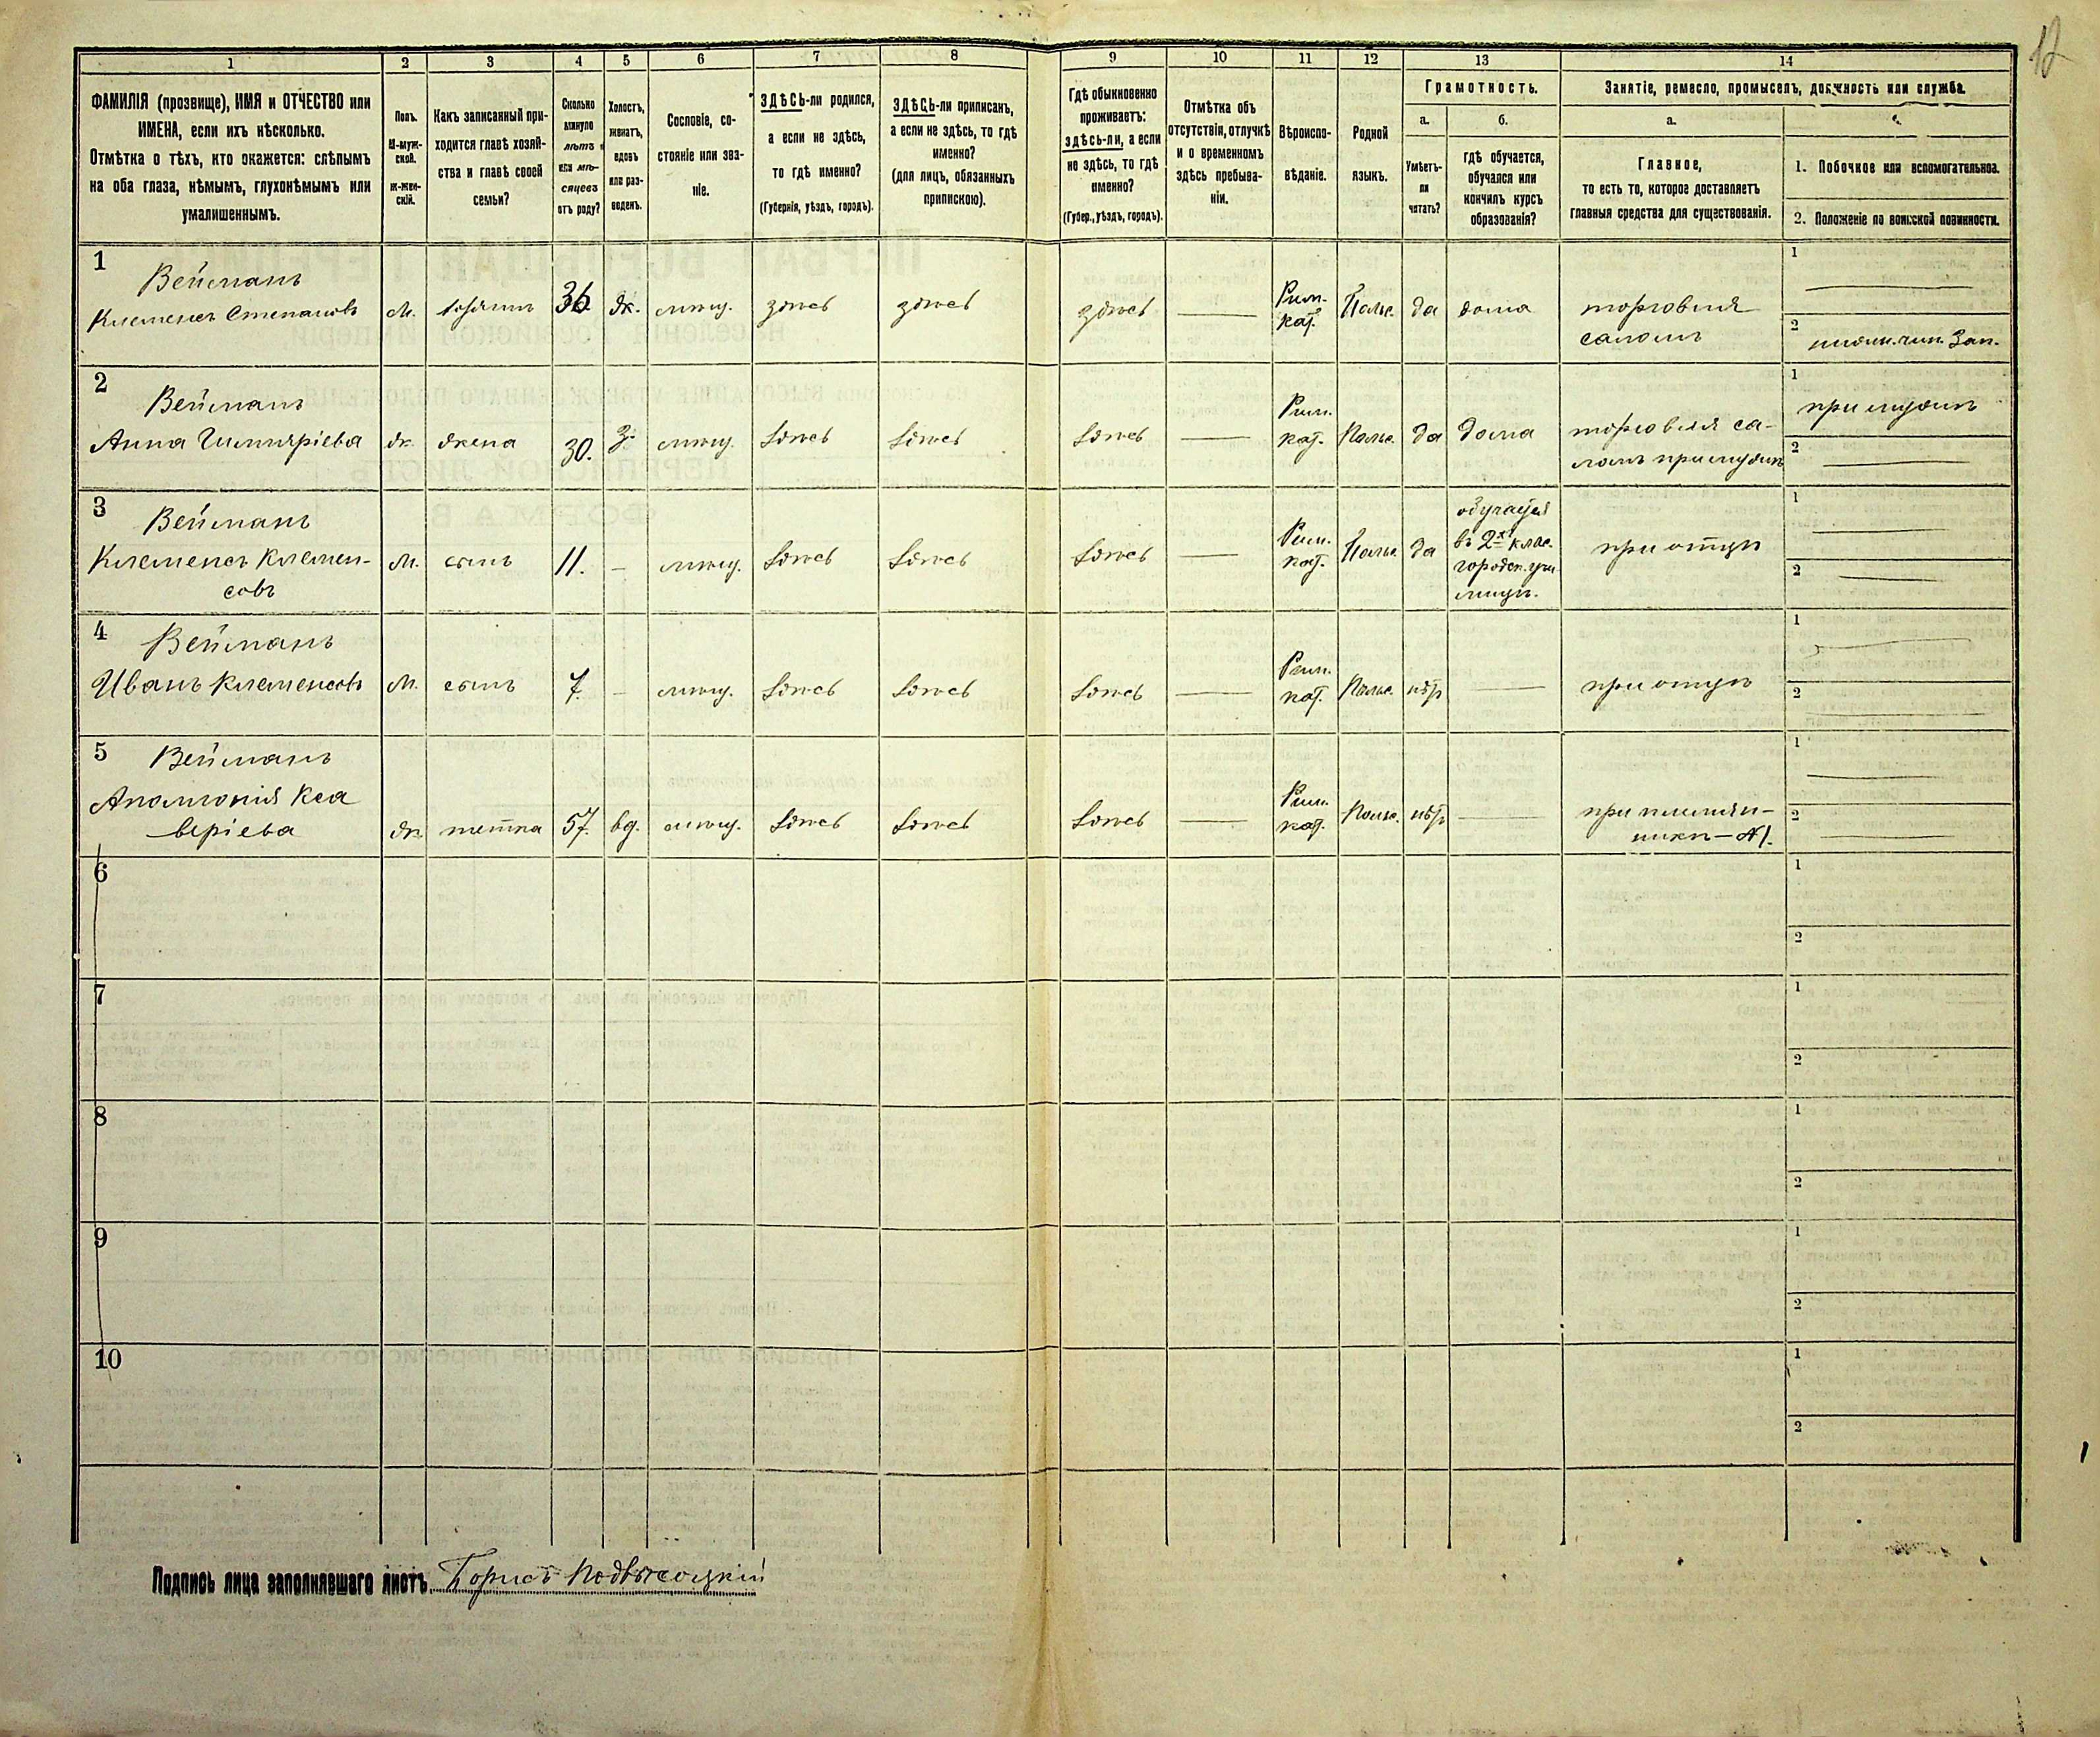 12
1
2
3
4
5
6
7
8
9
10
11
12
13
14
ФАМИЛІЯ (прозвище), ИМЯ и ОТЧЕСТВО или
ИМЕНА, если ихъ нѣсколько.
Отмѣтка о тѣхъ, кто окажется: слѣпымъ
на оба глаза, нѣмымъ, глухонѣмымъ или
умалишеннымъ.
Полъ.
М-муж-
ской.
ж-жен-
скій.
Какъ записанный при-
ходится главѣ хозяй-
ства и главѣ своей
семьи?
Сколько
минуло
лѣтъ
или мѣ-
сяцевъ
отъ роду?
Холостъ,
женатъ,
вдовъ
или раз-
веденъ.
Сословіе, со-
стояніе или зва-
ніе.
ЗДѢСЬ-ли родился,
а если не здѣсь,
то гдѣ именно?
(Губернія, уѣздъ, городъ).
ЗДѢСЬ-ли приписанъ,
а если не здѣсь, то гдѣ
именно?
(для лицъ, обязанныхъ
припискою).
Гдѣ обыкновенно
проживаетъ:
здѣсь-ли, а если
не здѣсь, то гдѣ
именно?
(Губер., уѣздъ, городъ).
Отмѣтка объ
отсутствіи, отлучкѣ
и о временномъ
здѣсь пребыва-
ніи.
Вѣроиспо-
вѣданіе.
Родной
языкъ.
Грамотность.
а.
Умѣетъ-
ли
читать?
б.
гдѣ обучается,
обучался или
кончилъ курсъ
образованія?
Занятіе, ремесло, промыселъ, должность или служба.
а.
Главное,
то есть то, которое доставляетъ
главныя средства для существованія.
1. Побочное или вспомогательное.
2. Положеніе по воинской повинности.
1
Вейманъ
Клеменсъ Степановъ
м.
хозяинъ
36
ж.
мѣщ.
здѣсь
здѣсь
здѣсь
Рим.
кат.
Польс.
да
дома
торговля
саломъ
1
2
2
Вейманъ
Анна
ж.
жена
30.
з.
мѣщ.
здѣсь
здѣсь
здѣсь
Рим.
кат.
Польс.
да
дома
торговля са-
ломъ при мужѣ
1
при мужѣ
2
3
Вейманъ
Клеменсъ Клемен-
совъ
м.
сынъ
11.
мѣщ.
здѣсь
здѣсь
здѣсь
Рим.
кат.
Польс.
да
обучается
въ 2х клас.
городск. учи
лищѣ.
при отцѣ
1
2
4
Вейманъ
Иванъ Клеменсовъ
м.
сынъ
7.
мѣщ.
здѣсь
здѣсь
здѣсь
Рим.
кат.
Польс.
нѣтъ
при отцѣ
1
2
5
Вейманъ
Аполлонія Кса
веріева
ж.
тетка
57.
вд.
мѣщ.
здѣсь
здѣсь
здѣсь
Рим.
кат.
Польс.
нѣтъ
при племян-
никѣ — №1.
1
2
6
1
2
7
1
2
8
1
2
9
1
2
10
1
2
Подпись лица заполнявшаго листъ Борисъ Подвысоцкій